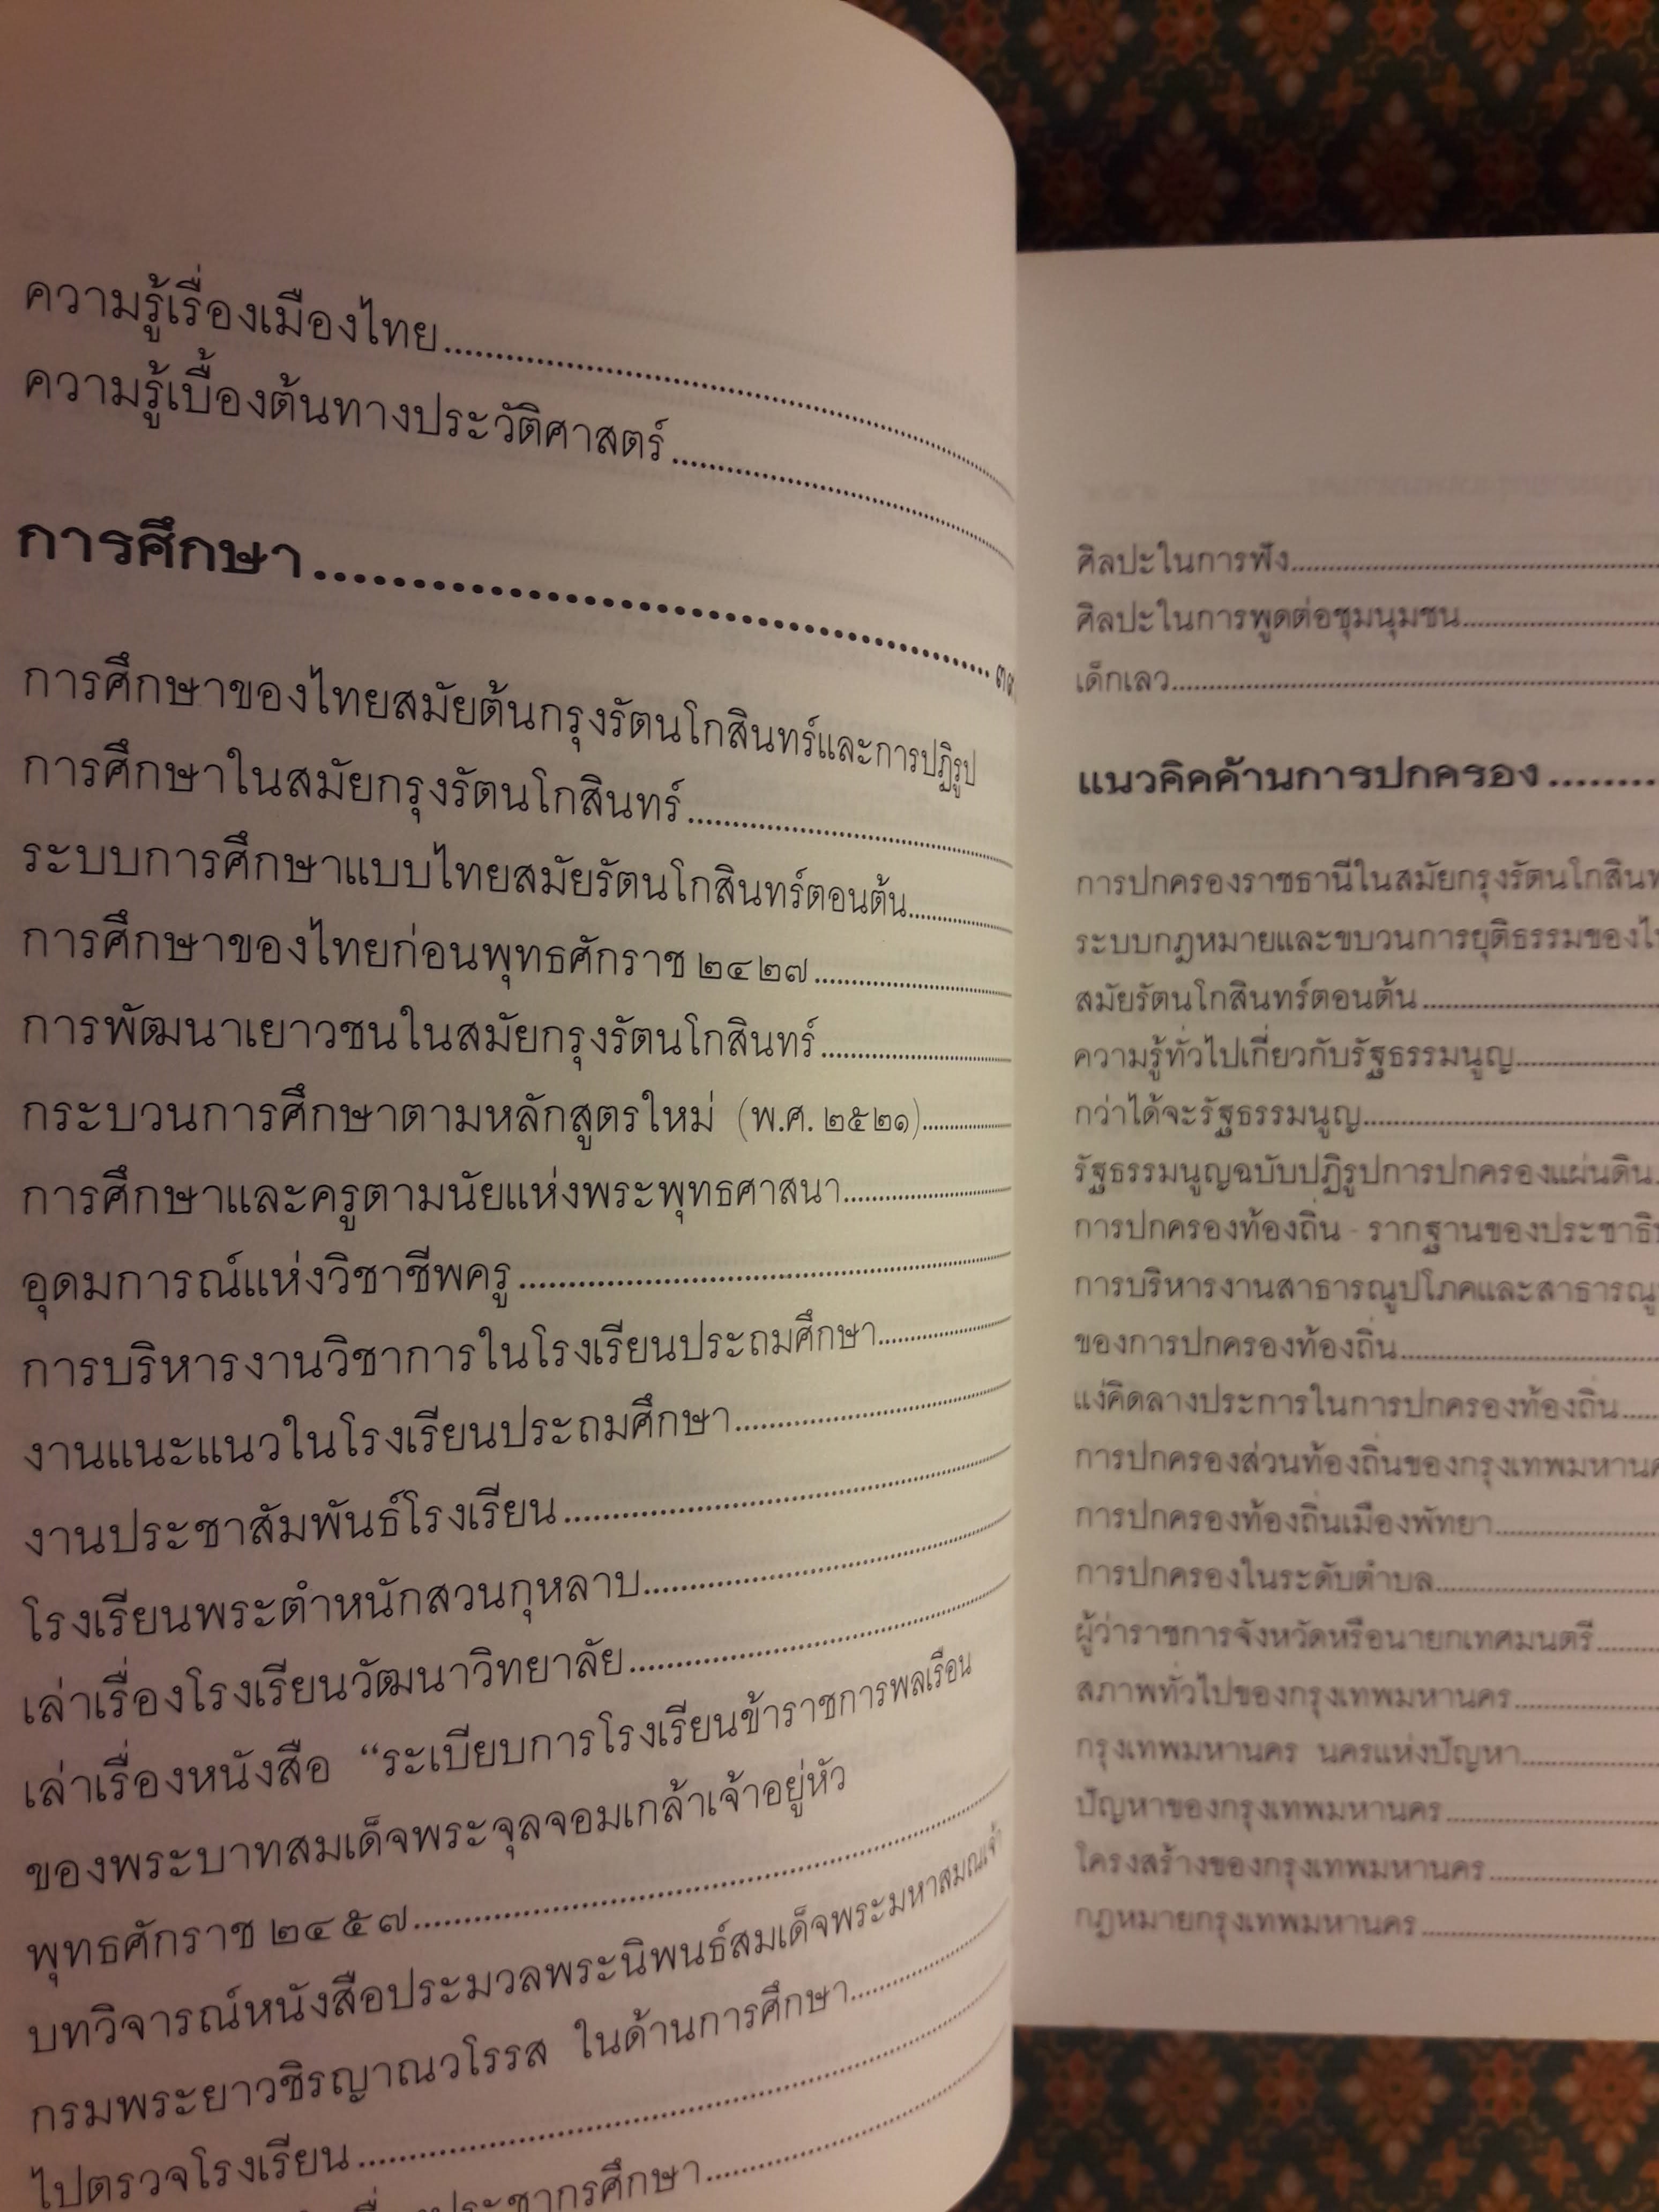 ความรู้เรื่องเมืองไทย
ความรู้เบื้องต้นทางประวัติศาสตร์
การศึกษา
การศึกษาของไทยสมัยต้นกรุงรัตนโกสินทร์และการปฏิรูป
การศึกษาในสมัยกรุงรัตนโกสินทร์
ระบบการศึกษาแบบไทยสมัยรัตนโกสินทร์ตอนต้น
การศึกษาของไทยก่อนพุทธศักราช ๒๔๒๗
การพัฒนาเยาวชนในสมัยกรุงรัตนโกสินทร์
กระบวนการศึกษาตามหลักสูตรใหม่ (พ.ศ. ๒๕๒๑)
การศึกษาและครูตามนัยแห่งพระพุทธศาสนา
อุดมการณ์แห่งวิชาชีพครู
การบริหารงานวิชาการในโรงเรียนประถมศึกษา
งานแนะแนวในโรงเรียนประถมศึกษา
งานประชาสัมพันธ์โรงเรียน
โรงเรียนพระตำหนักสวนกุหลาบ
เล่าเรื่องโรงเรียนวัฒนาวิทยาลัย
เล่าเรื่องหนังสือ “ระเบียบการโรงเรียนข้าราชการพลเรือน
ของพระบาทสมเด็จพระจุลจอมเกล้าเจ้าอยู่หัว
พุทธศักราช ๒๔๕๗
บทวิจารณ์หนังสือประมวลพระนิพนธ์สมเด็จพระมหาสมณเจ้า
กรมพระยาวชิรญาณวโรรส ในด้านการศึกษา
ไปตรวจโรงเรียน
ประชากรศึกษา
ศิลปะในการฟัง
ศิลปะในการพูดต่อชุมนุมชน
เด็กเลว
แนวคิดด้านการปกครอง
การปกครองราชธานีในสมัยกรุงรัตนโกสินท
ระบบกฎหมายและขบวนการยุติธรรมของไ
สมัยรัตนโกสินทร์ตอนต้น
ความรู้ทั่วไปเกี่ยวกับรัฐธรรมนูญ
กว่าได้จะรัฐธรรมนูญ
รัฐธรรมนูญฉบับปฏิรูปการปกครองแผ่นดิน
การปกครองท้องถิ่น - รากฐานของประชาธิ
การบริหารงานสาธารณูปโภคและสาธารณู
ของการปกครองท้องถิ่น
แง่คิดลางประการในการปกครองท้องถิ่น
การปกครองส่วนท้องถิ่นของกรุงเทพมหานค
การปกครองท้องถิ่นเมืองพัทยา
การปกครองในระดับตำบล
ผู้ว่าราชการจังหวัดหรือนายกเทศมนตรี
สภาพทั่วไปของกรุงเทพมหานคร
กรุงเทพมหานคร นครแห่งปัญหา
ปัญหาของกรุงเทพมหานคร
โครงสร้างของกรุงเทพมหานคร
กฎหมายกรุงเทพมหานคร